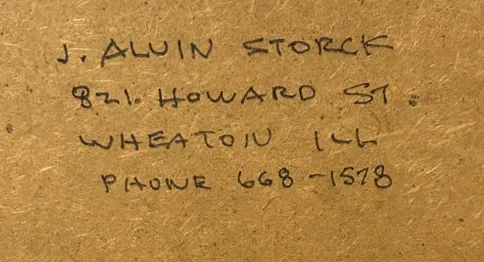 J. ALVIN STORCK
821. HOWARD ST.
WHEATON ILL
PHONE 668-1578